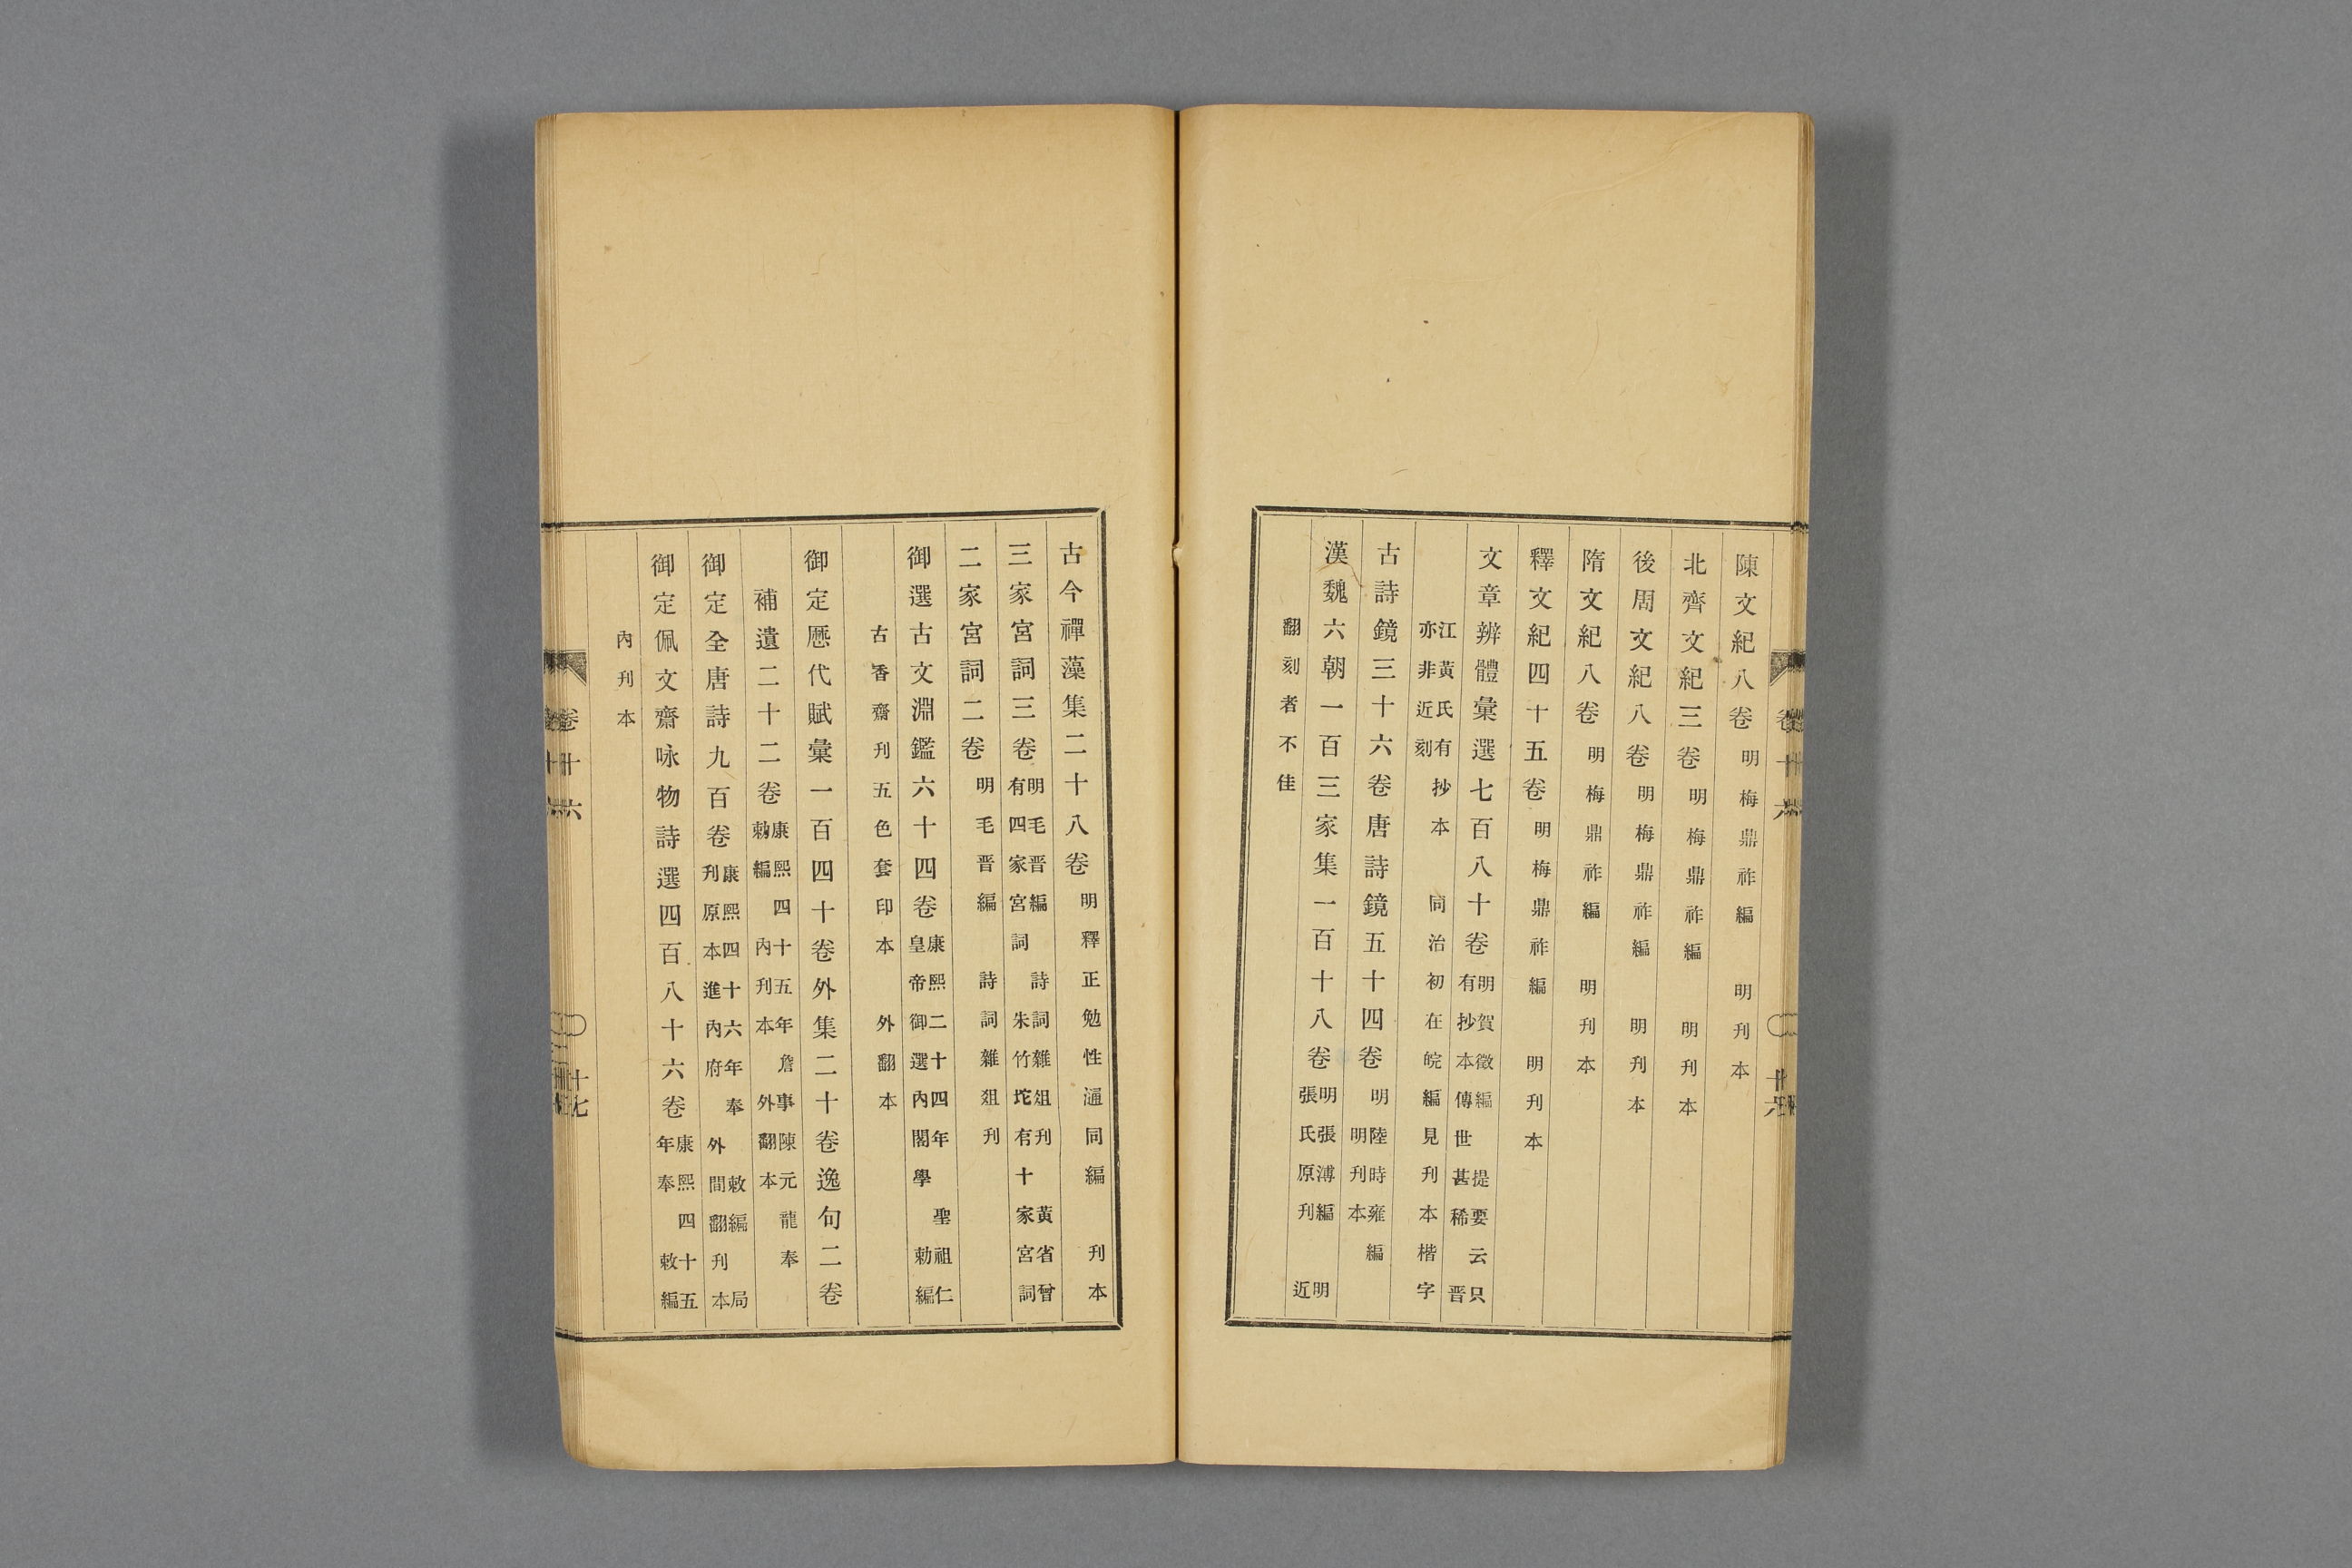 陳文紀八卷 明梅鼎祚編 明刊本
北齊文紀三卷 明梅鼎祚編 明刊本
後周文紀八卷 明梅鼎祚編 明刊本
隋文紀八卷 明梅鼎祚編 明刊本
釋文紀四十五卷 明梅鼎祚編 明刊本
文章辨體彙選七百八十卷 明賀徵編 提要云只
有抄本傳世甚稀 晋
江黃氏有抄本 同治初在皖編見刊本楷字
亦非近刻
古詩鏡三十六卷唐詩鏡五十四卷 明陸時雍編
明刊本
漢魏六朝一百三家集一百十八卷 明張溥編 明
張氏原刊 近
翻刻者不佳
卷十六
古今禪藻集二十八卷 明釋正勉性通同編 刊本
三家宮詞三卷 明毛晋編 詩詞雜俎刊 黃省曾
有四家宮詞 朱竹坨有十家宮詞
二家宮詞二卷 明毛晋編 詩詞雜俎刊
御選古文淵鑑六十四卷 康熙二十四年 聖祖仁
皇帝御選內閣學 勅編
古香齋刊五色套印本 外翻本
御定歷代賦彙一百四十卷外集二十卷逸句二卷
補遺二十二卷 康熙四十五年詹事陳元龍奉
勅編 內刊本 外翻本
御定全唐詩九百卷 康熙四十六年奉 敕編 局
刊原本進內府 外間翻刊本
御定佩文齋咏物詩選四百八十六卷 康熙四十五
年奉 敕編
內刊本
卷十六
十七